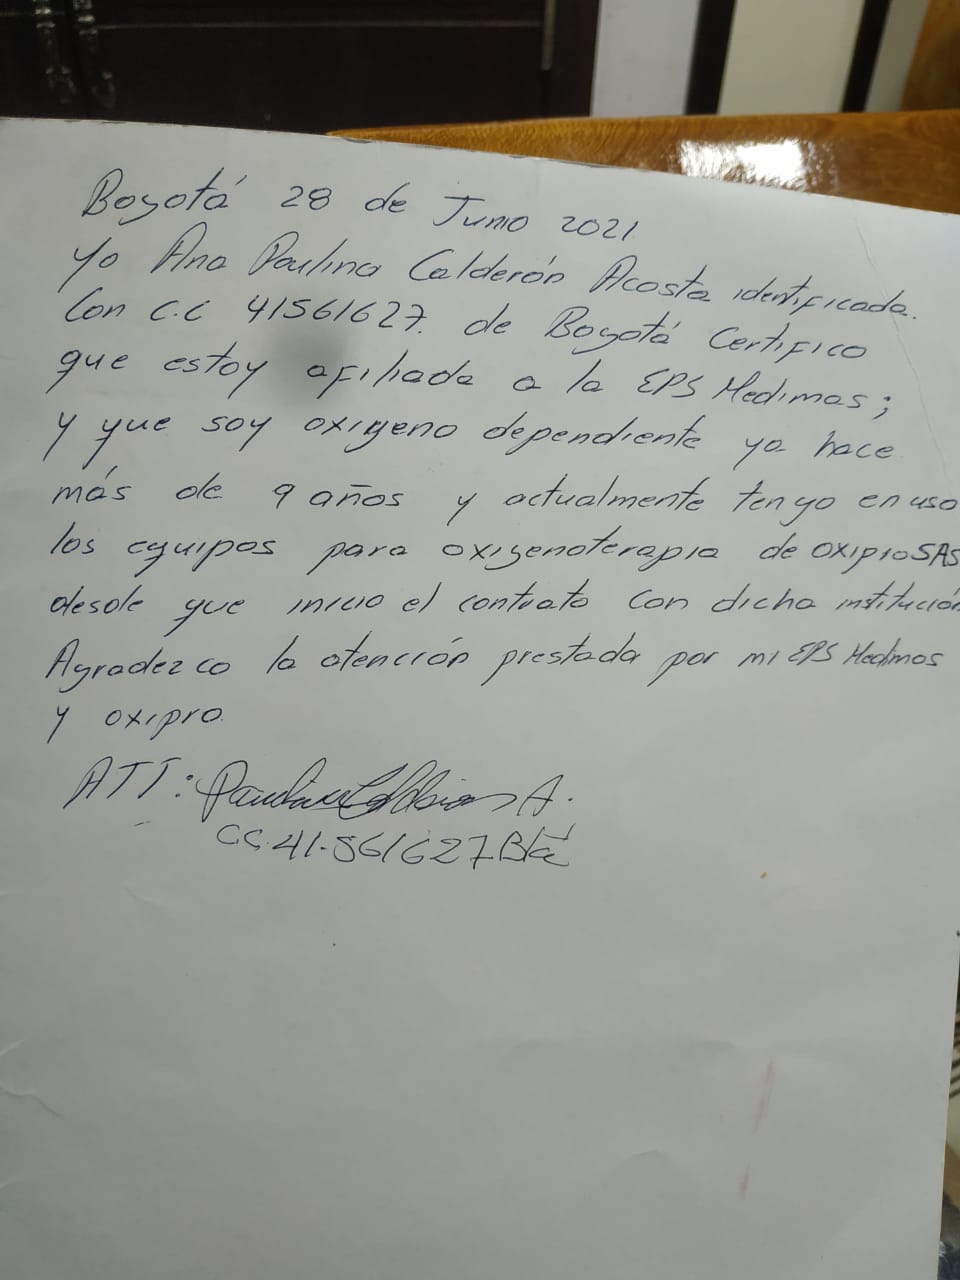 Bogotá 28 de Junio 2021
Yo Ana Paulina Calderón Acosta identificada.
Con C.C 41561627. de Bogotá Certifico
que estoy afiliada a la EPS Medimas;
y que soy oxigeno dependiente ya hace
más de 9 años y actualmente tengo en uso
los equipos para oxigenoterapia de oxiproSAS
desde que inicio el contrato con dicha institución
Agradezco la atención prestada por mi EPS Medimas
y oxipro.
ATT: Paulina Calderón A.
C.C. 41.561627 Bta